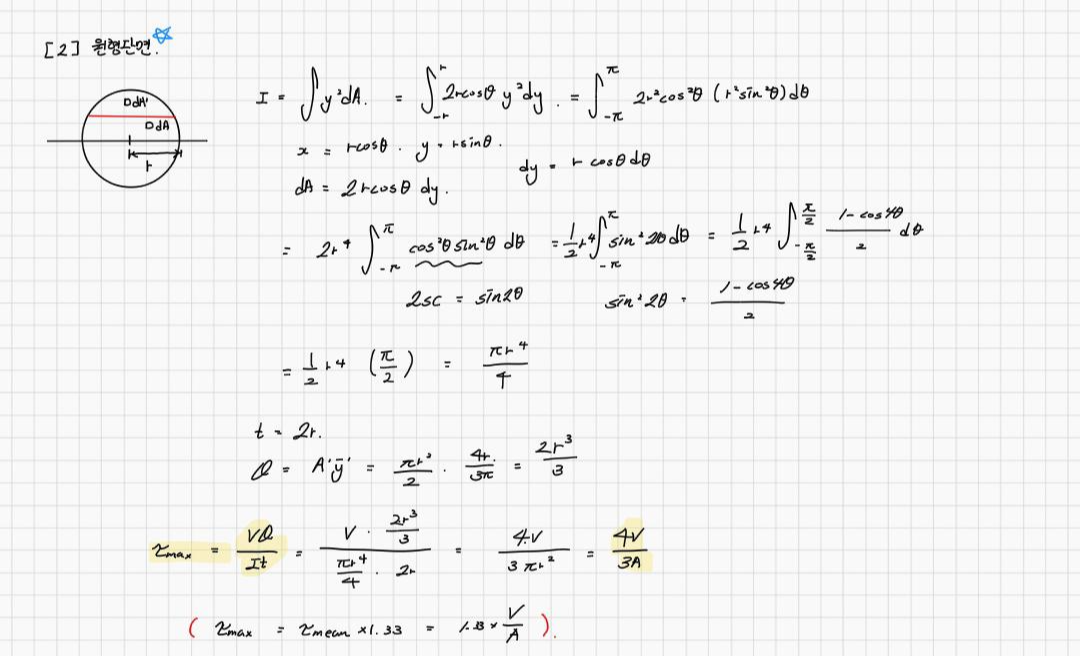 [2] 원형단면.
□dA'
□dA
r
I = ∫y²dA. = ∫_{-r}^{r} 2rcosθ y²dy. = ∫_{-π}^{π} 2r²cos²θ (r²sin²θ)dθ
x = rcosθ. y = rsinθ. dy = r cosθdθ
dA = 2rcosθ dy.
= 2r⁴ ∫_{-π}^{π} cos²θsin²θ dθ = 1/2 r⁴ ∫_{-π}^{π} sin²2θdθ = 1/2 r⁴ ∫_{-π/2}^{π/2} (1-cos4θ)/2 dθ
2sc = sin2θ sin²2θ = (1-cos4θ)/2
= 1/2 r⁴ (π/2) = πr⁴/4
t = 2r.
Q = A'ȳ' = πr²/2 · 4r/3π = 2r³/3
τmax = VQ/It = (V · 2r³/3)/(πr⁴/4 · 2r) = 4V/3πr² = 4V/3A
( τmax = τmean ×1.33 = 1.33 × V/A ).